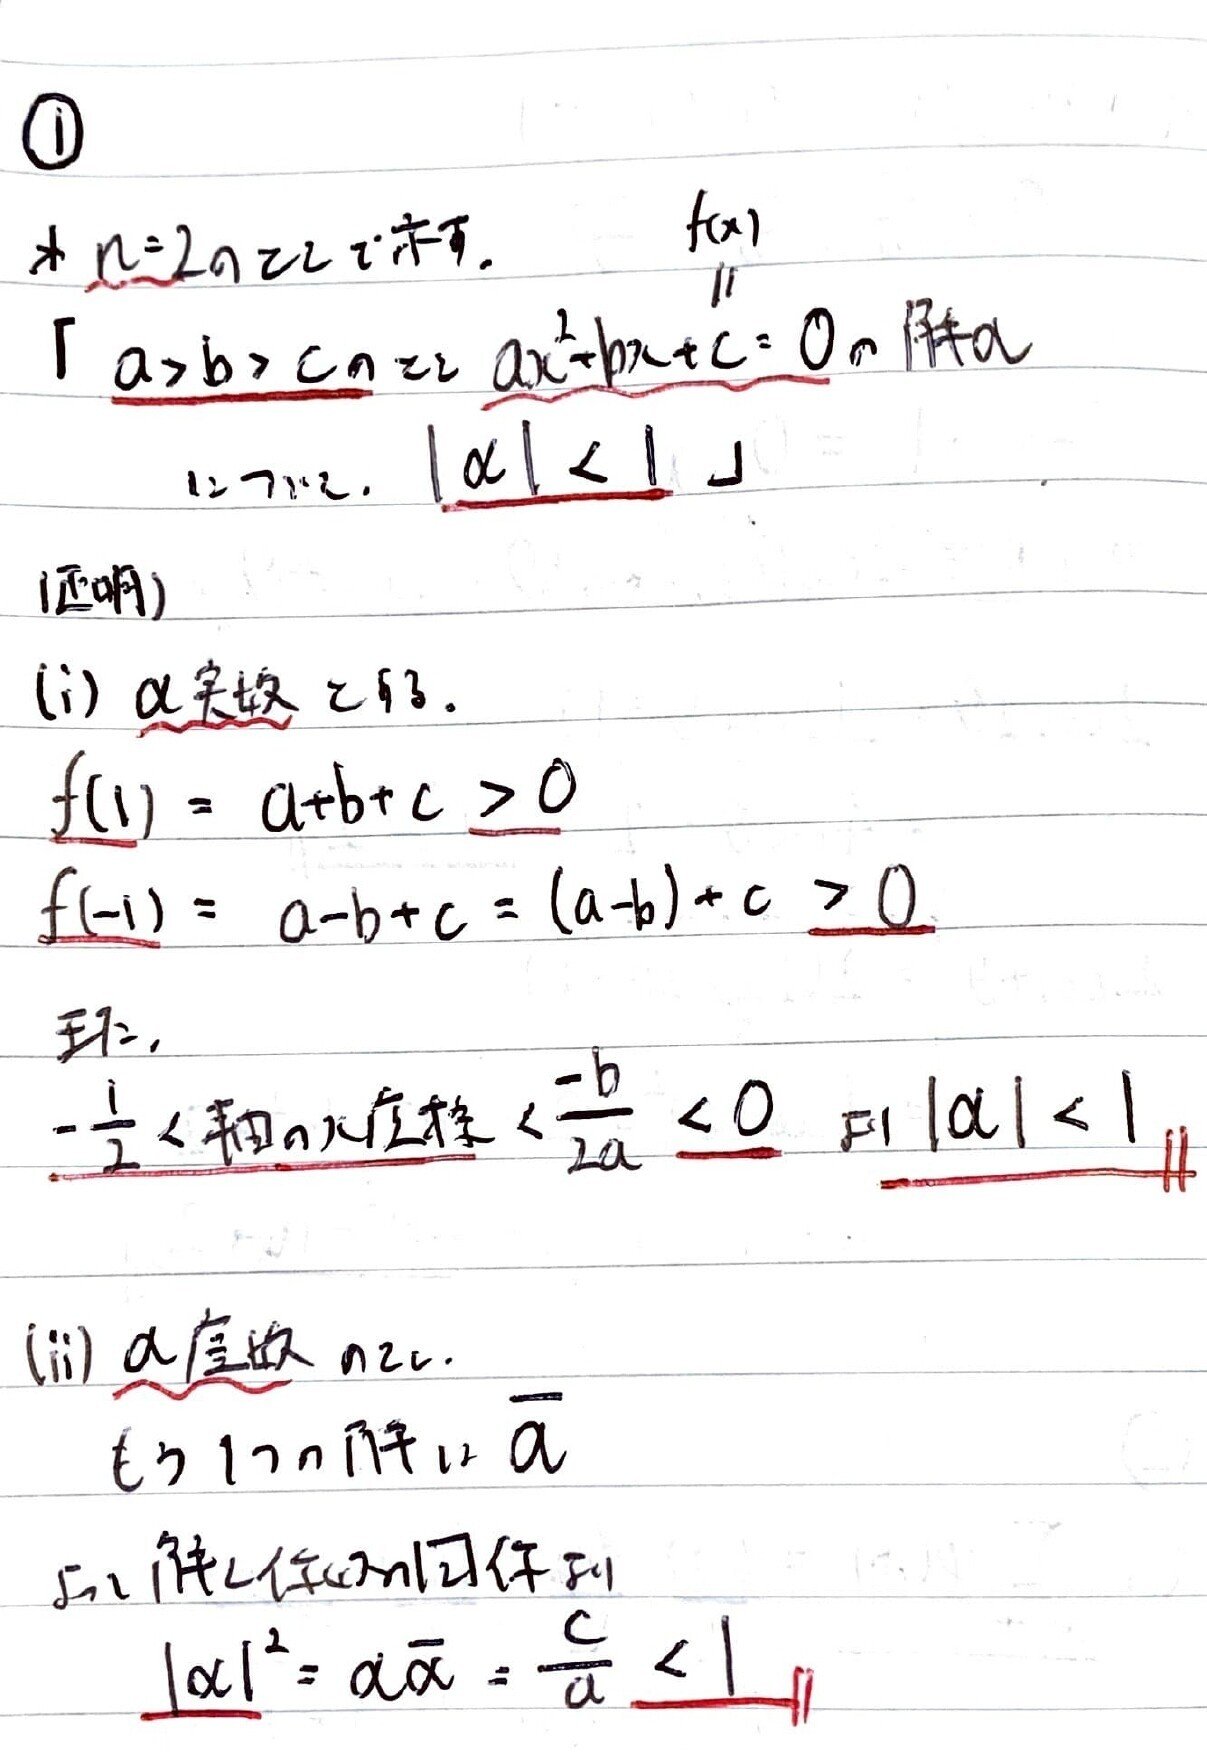 ①
* n=2のときで示す.
f(x)
||
「a>b>cのとき ax²+bx+c=0の解α
について. |α|<1」
(証明)
(i) α実数とする.
f(1) = a+b+c >0
f(-1) = a-b+c = (a-b)+c >0
また.
-1/2 < 軸のx座標 < -b/2a < 0 より |α|<1
(ii) α虚数のとき.
もう1つの解は ᾱ
よって解と係数の関係より
|α|² = αᾱ = c/a < 1